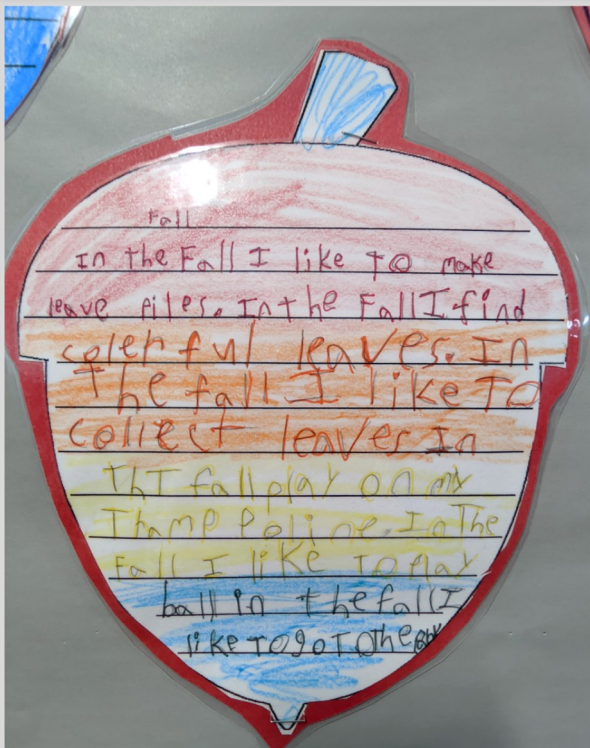 Fall
In the Fall I like To make
leave piles. In the Fall I find
colerful leaves. In
The fall I like To
collect leaves In
ThT fall play on my
Thamp Poline. In The
Fall I like To Play
ball in the fall I
like To go To the